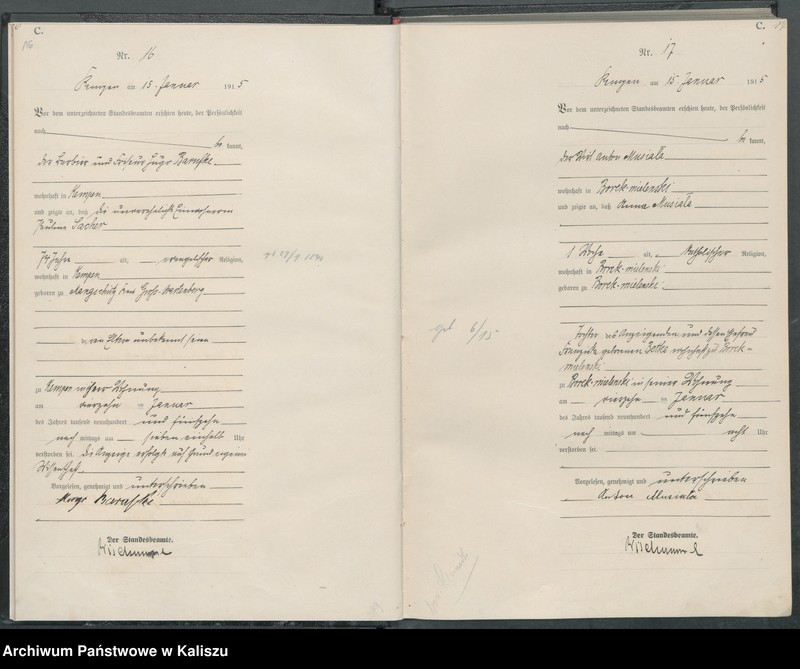 C.
16
Nr. 16
Kempen am 15. Januar 1915
Vor dem unterzeichneten Standesbeamten erschien heute, der Persönlichkeit
nach
be kannt,
der Barbier und Friseur Hugo
wohnhaft in Kempen
und zeigte an, daß die unverehelichte
Pauline Sacher
74 Jahre alt, evangelischer Religion,
wohnhaft in Kempen
geboren zu
deren Eltern unbekannt seien
zu Kempen in ihrer Wohnung
am vierzehn ten Januar
des Jahres tausend neunhundert und fünfzehn
nach mittags um sieben einhalb Uhr
verstorben sei. Die Anzeige erfolgte auf Grund eigener
Wissenschaft.
Vorgelesen, genehmigt und unterschrieben
Hugo
Der Standesbeamte.
C.
17
Nr. 17
Kempen am 15 Januar 1915
Vor dem unterzeichneten Standesbeamten erschien heute, der Persönlichkeit
nach
be kannt,
der Wirt Anton Musiala
wohnhaft in Borek-mielenski
und zeigte an, daß Anna Musiala
1 Woche alt, katholischer Religion,
wohnhaft in Borek-mielenski
geboren zu Borek-mielenski
geb 6/1 15
Tochter des Anzeigenden und dessen Ehefrau
Franziska geborenen wohnhaft zu Borek-
mielenski
zu Borek-mielenski in seiner Wohnung
am vierzehn ten Januar
des Jahres tausend neunhundert und fünfzehn
nach mittags um acht Uhr
verstorben sei.
Vorgelesen, genehmigt und unterschrieben
Anton Musiala
Der Standesbeamte.
Archiwum Państwowe w Kaliszu